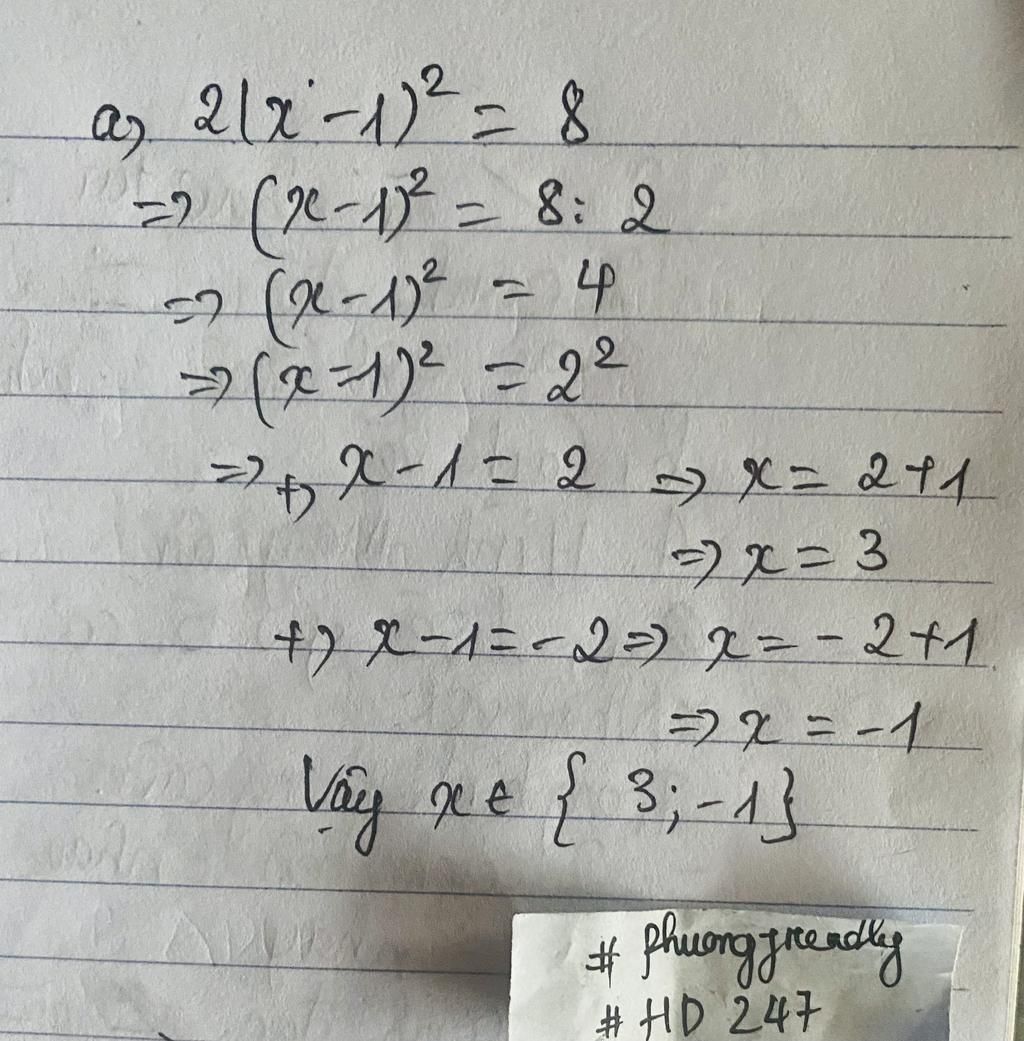 a) 2(x-1)² = 8
=> (x-1)² = 8: 2
=> (x-1)² = 4
=> (x-1)² = 2²
=> +) x-1 = 2 => x = 2+1
=> x = 3
+) x-1 = -2 => x = -2+1
=> x = -1
Vậy x ∈ { 3; -1}
# phuongfreendly
# HD 247